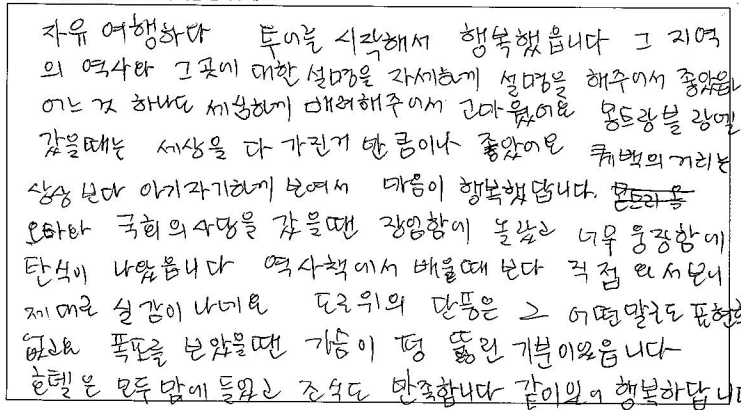 자유 여행하다 투어를 시작해서 행복했읍니다 그 지역
의 역사와 그곳에 대한 설명을 자세하게 설명을 해주어서 좋았읍니
어느 것 하나도 세심하게 배려해주어서 고마웠어요 몽트랑블랑엘
갔을때는 세상을 다 가진거 만큼이나 좋았어요 퀘백의 거리는
상상보다 아기자기하게 보여서 마음이 행복했답니다.
오타와 국회의사당을 갔을땐 장엄함에 놀랐고 너무 웅장함에
탄식이 나왔읍니다 역사책에서 배울때 보다 직접 와서보니
제대로 실감이 나네요 도로위의 단풍은 그 어떤말로도 표현할
없고요 폭포를 보았을땐 가슴이 펑 뚫린 기분이었읍니다
호텔은 모두 맘에 들었고 조식도 만족합니다 같이있어 행복하답니다